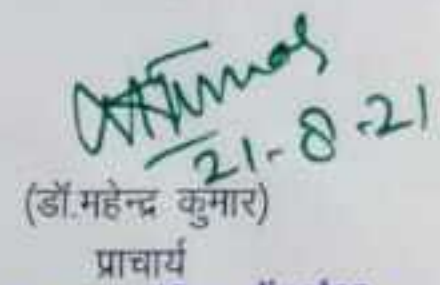 21-8-21
(डॉ.महेन्द्र कुमार)
प्राचार्य